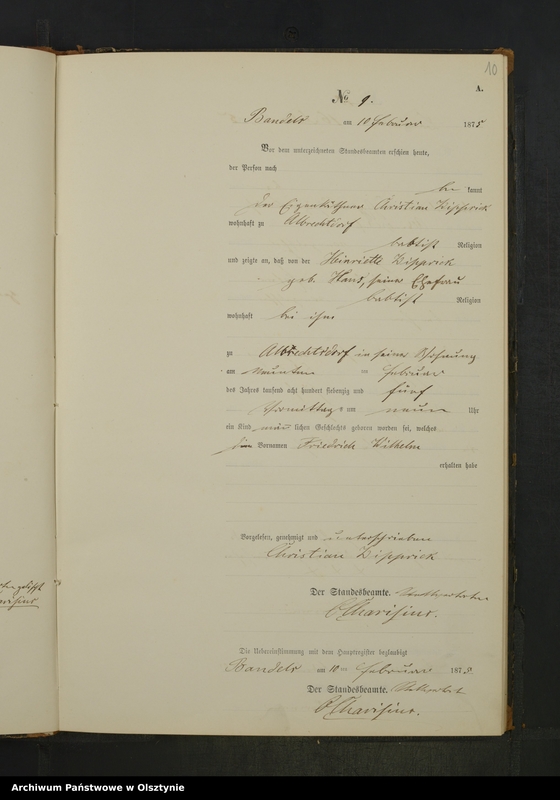 10
A.
№ 9.
Bandels am 10 Februar 1875
Vor dem unterzeichneten Standesbeamten erschien heute,
der Person nach
be kannt
der Eigenkäthner Christian Dipprick
wohnhaft zu Albrechtsdorf
babtist Religion
und zeigte an, daß von der Heinriette Dipprick
geb. Hans, seiner Ehefrau
babtist Religion
wohnhaft bei ihm
zu Albrechtsdorf in seiner Wohnung
am neunten Februar
des Jahres tausend acht hundert siebenzig und fünf
Vormittags um neun Uhr
ein Kind männ lichen Geschlechts geboren worden sei, welches
Vornamen Friedrich Wilhelm
erhalten habe
Vorgelesen, genehmigt und unterschrieben
Christian Dipprick
Der Standesbeamte.
Die Uebereinstimmung mit dem Hauptregister beglaubigt
Bandels am 10ten Februar 1875
Der Standesbeamte.
Archiwum Państwowe w Olsztynie